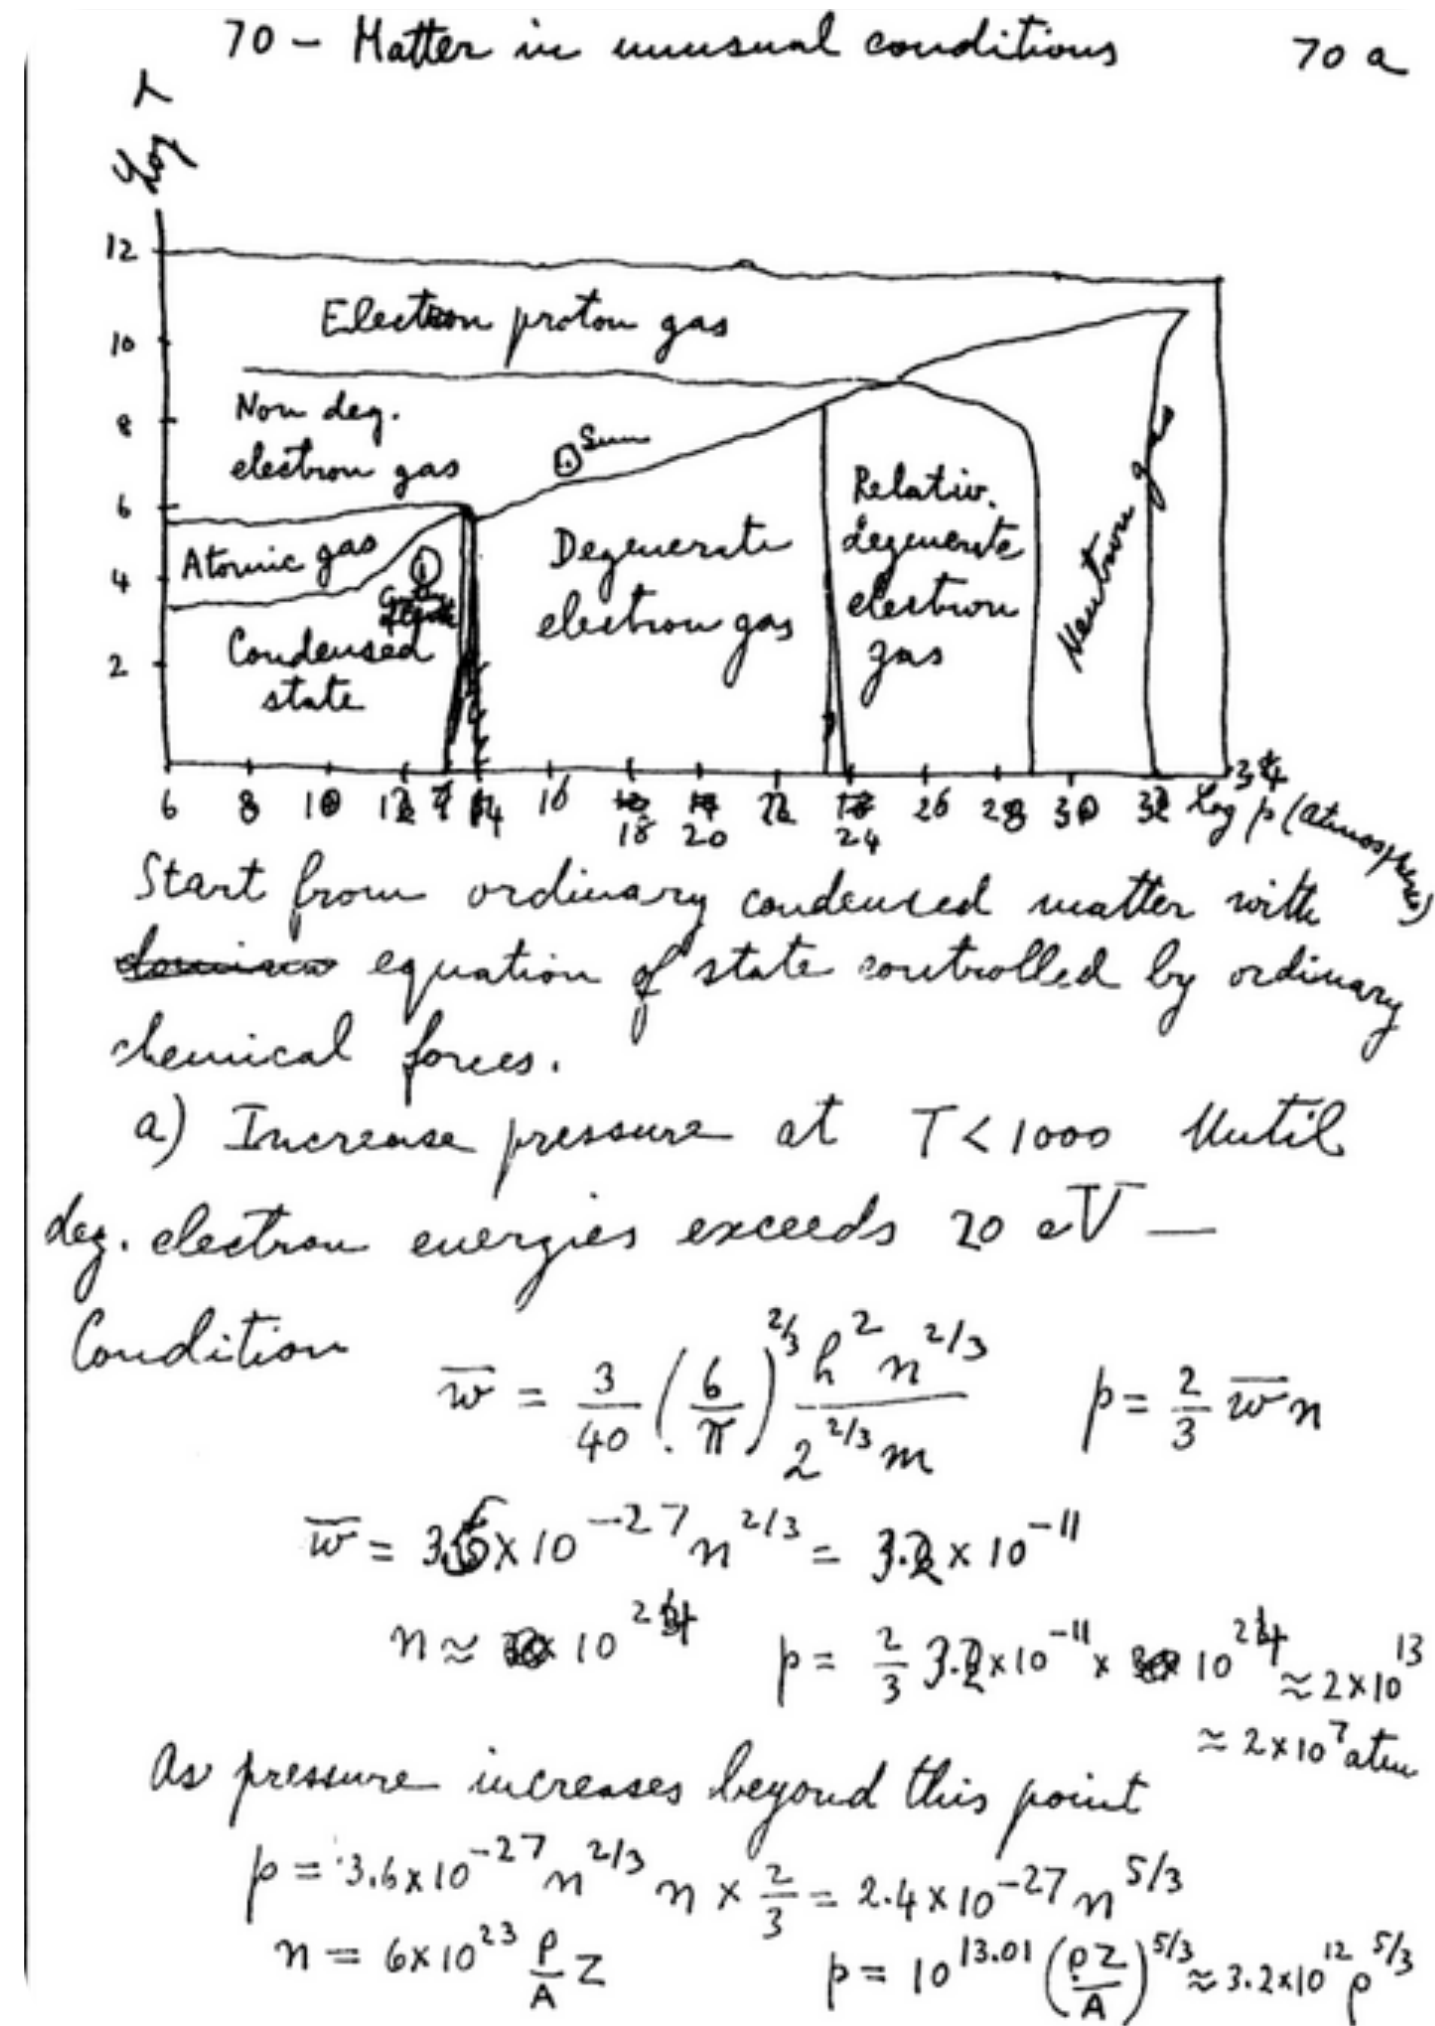 70 – Matter in unusual conditions 70 a
Log T
12
Electron proton gas
10
Non deg.
8
electron gas
Sun
6
Relativ.
Atomic gas
Degenerate
degenerate
4
electron gas
electron
gas
Neutron gas
Condensed
2
state
6 8 10 12 14 16 18 20 22 24 26 28 30 32 34 Log p (atmospheres)
Start from ordinary condensed matter with
equation of state controlled by ordinary
chemical forces.
a) Increase pressure at T < 1000 Until
deg. electron energies exceeds 20 eV —
Condition w̄ = 3/40 (6/π)^2/3 h^2 n^2/3 / 2^2/3 m p = 2/3 w̄ n
w̄ = 3.6 × 10^-27 n^2/3 = 3.2 × 10^-11
n ≈ 10^24 p = 2/3 3.2 × 10^-11 × 10^24 ≈ 2 × 10^13
≈ 2 × 10^7 atm
As pressure increases beyond this point
p = 3.6 × 10^-27 n^2/3 n × 2/3 = 2.4 × 10^-27 n^5/3
n = 6 × 10^23 ρ/A Z p = 10^13.01 (ρZ/A)^5/3 ≈ 3.2 × 10^12 ρ^5/3